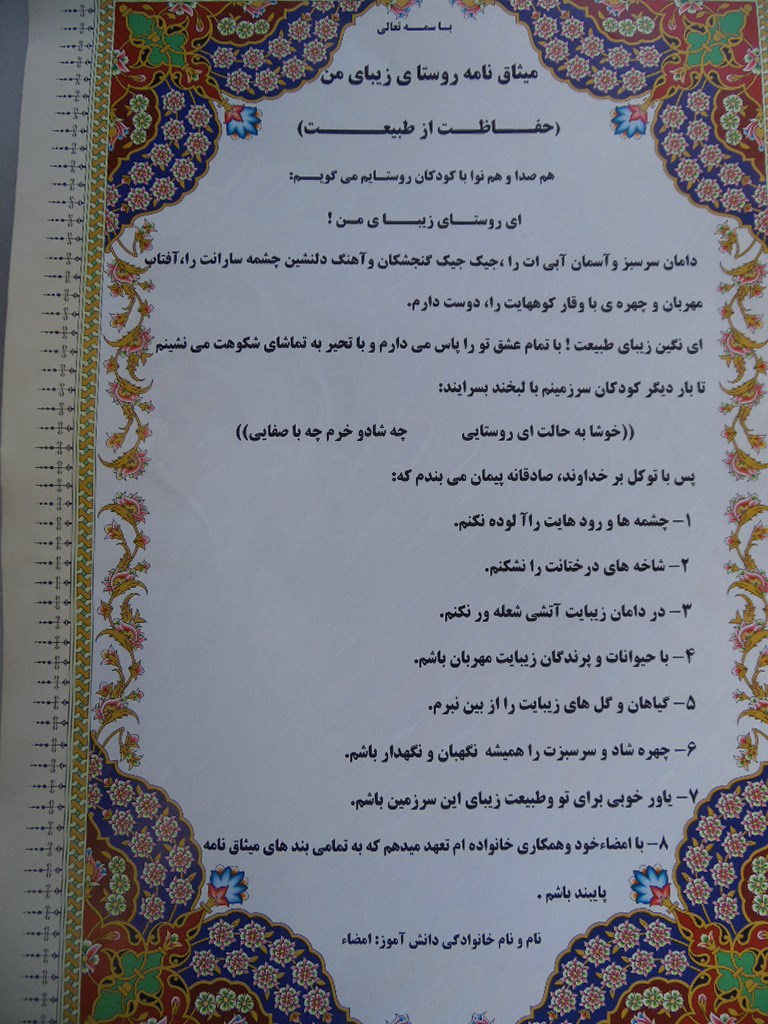 با سمه تعالی
میثاق نامه روستا ی زیبای من
(حفاظت از طبیعت)
هم صدا و هم نوا با کودکان روستایم می گویم:
ای روستای زیبا ی من !
دامان سرسبز وآسمان آبی ات را ،جیک جیک گنجشکان وآهنگ دلنشین چشمه سارانت را،آفتاب
مهربان و چهره ی با وقار کوههایت را، دوست دارم.
ای نگین زیبای طبیعت ! با تمام عشق تو را پاس می دارم و با تحیر به تماشای شکوهت می نشینم
تا بار دیگر کودکان سرزمینم با لبخند بسرایند:
((خوشا به حالت ای روستایی چه شادو خرم چه با صفایی))
پس با توکل بر خداوند، صادقانه پیمان می بندم که:
۱- چشمه ها و رود هایت راآ لوده نکنم.
۲- شاخه های درختانت را نشکنم.
۳- در دامان زیبایت آتشی شعله ور نکنم.
۴- با حیوانات و پرندگان زیبایت مهربان باشم.
۵- گیاهان و گل های زیبایت را از بین نبرم.
۶- چهره شاد و سرسبزت را همیشه نگهبان و نگهدار باشم.
۷- یاور خوبی برای تو وطبیعت زیبای این سرزمین باشم.
۸- با امضاءخود وهمکاری خانواده ام تعهد میدهم که به تمامی بند های میثاق نامه
پایبند باشم .
نام و نام خانوادگی دانش آموز: امضاء